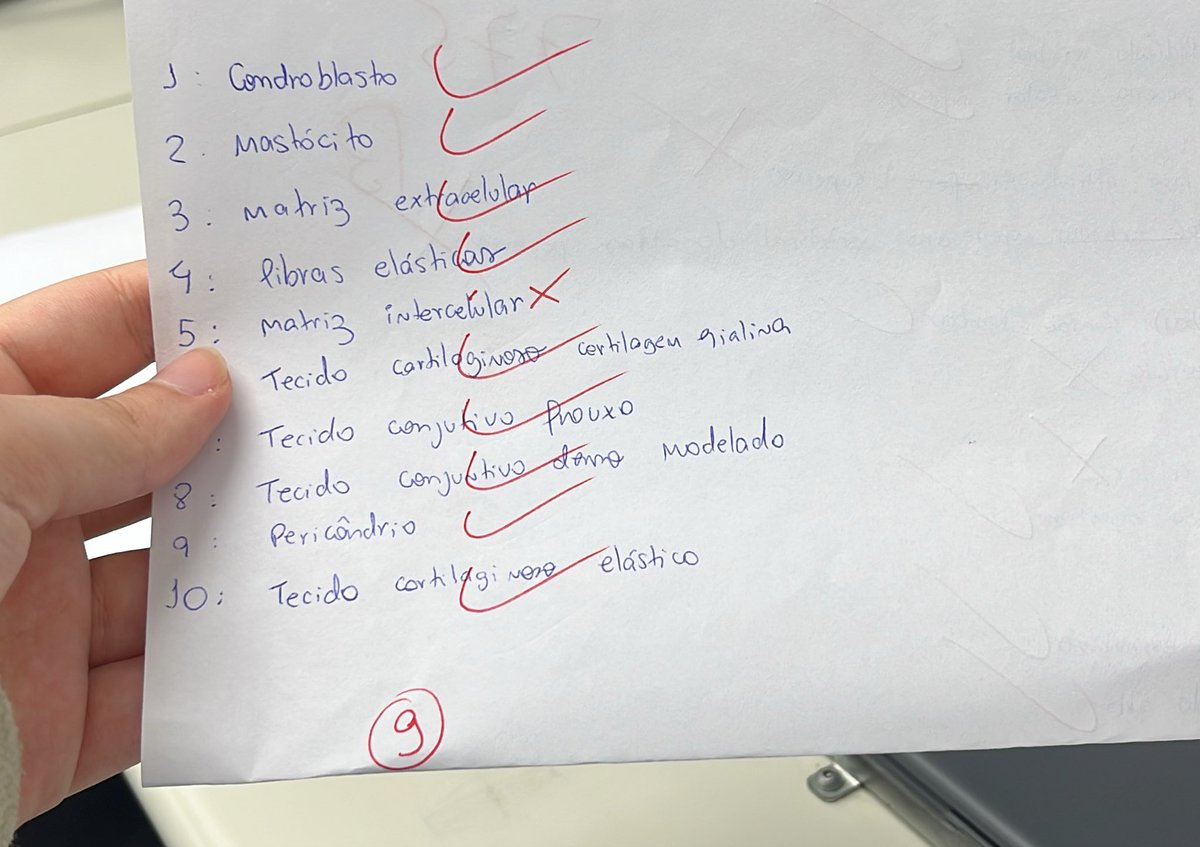 1: Condroblasto
2. Mastócito
3: Matriz extracelular
4: fibras elásticas
5: Matriz intercelular
Tecido cartilaginoso cartilagem gialina
: Tecido conjutivo frouxo
8: Tecido conjuntivo denso modelado
9: Pericôndrio
10: Tecido cartilaginoso elástico
9